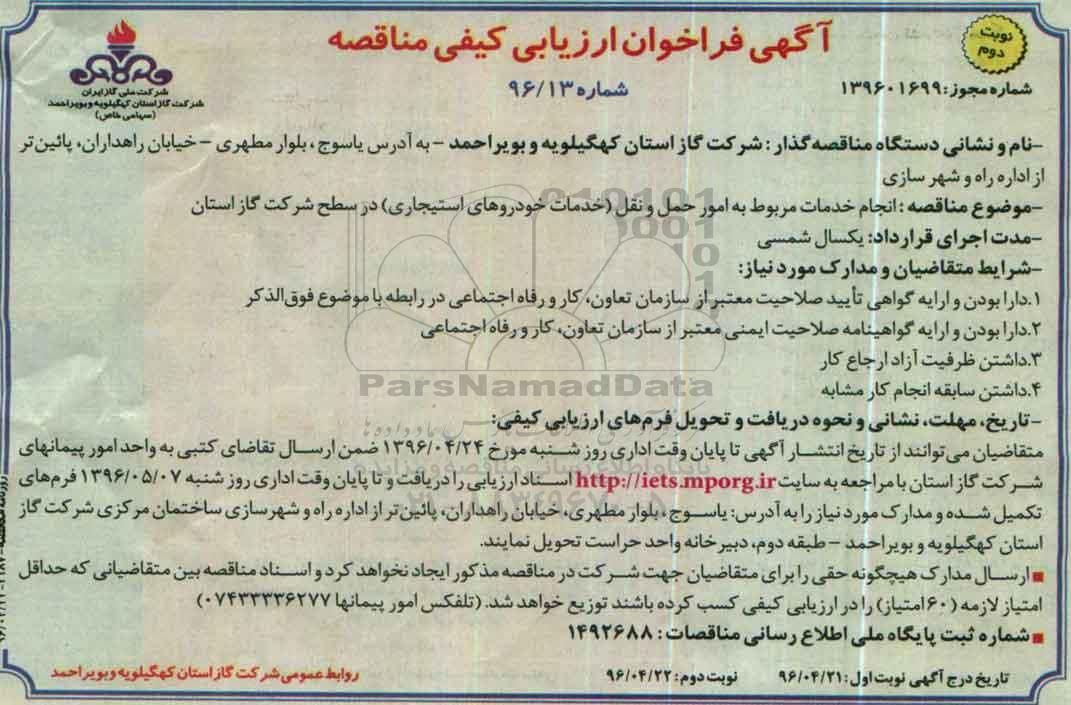 نوبت
دوم
آگهی فراخوان ارزیابی کیفی مناقصه
شماره ۹۶/۱۳
شرکت ملی گاز ایران
شرکت گاز استان کهگیلویه و بویراحمد
(سهامی خاص)
شماره مجوز: ۱۳۹۶۰۱۶۹۹
-نام و نشانی دستگاه مناقصه‌گذار: شرکت گاز استان کهگیلویه و بویراحمد - به آدرس یاسوج، بلوار مطهری - خیابان راهداران، پائین‌تر
از اداره راه و شهر سازی
-موضوع مناقصه: انجام خدمات مربوط به امور حمل و نقل (خدمات خودروهای استیجاری) در سطح شرکت گاز استان
-مدت اجرای قرارداد: یکسال شمسی
-شرایط متقاضیان و مدارک مورد نیاز:
۱.دارا بودن و ارایه گواهی تأیید صلاحیت معتبر از سازمان تعاون، کار و رفاه اجتماعی در رابطه با موضوع فوق‌الذکر
۲.دارا بودن و ارایه گواهینامه صلاحیت ایمنی معتبر از سازمان تعاون، کار و رفاه اجتماعی
۳.داشتن ظرفیت آزاد ارجاع کار
۴.داشتن سابقه انجام کار مشابه
ParsNamadData
-تاریخ، مهلت، نشانی و نحوه دریافت و تحویل فرم‌های ارزیابی کیفی:
متقاضیان می‌توانند از تاریخ انتشار آگهی تا پایان وقت اداری روز شنبه مورخ ۱۳۹۶/۰۴/۲۴ ضمن ارسال تقاضای کتبی به واحد امور پیمانهای
شرکت گاز استان با مراجعه به سایت http://iets.mporg.ir اسناد ارزیابی را دریافت و تا پایان وقت اداری روز شنبه ۱۳۹۶/۰۵/۰۷ فرم‌های
تکمیل شده و مدارک مورد نیاز را به آدرس: یاسوج، بلوار مطهری، خیابان راهداران، پائین‌تر از اداره راه و شهرسازی ساختمان مرکزی شرکت گاز
استان کهگیلویه و بویراحمد - طبقه دوم، دبیرخانه واحد حراست تحویل نمایند.
■ ارسال مدارک هیچگونه حقی را برای متقاضیان جهت شرکت در مناقصه مذکور ایجاد نخواهد کرد و اسناد مناقصه بین متقاضیانی که حداقل
امتیاز لازمه (۶۰امتیاز) را در ارزیابی کیفی کسب کرده باشند توزیع خواهد شد. (تلفکس امور پیمانها ۰۷۴۳۳۳۳۶۲۷۷)
■ شماره ثبت پایگاه ملی اطلاع رسانی مناقصات: ۱۴۹۲۶۸۸
تاریخ درج آگهی نوبت اول: ۹۶/۰۴/۲۱ نوبت دوم: ۹۶/۰۴/۲۲
روابط عمومی شرکت گاز استان کهگیلویه و بویراحمد